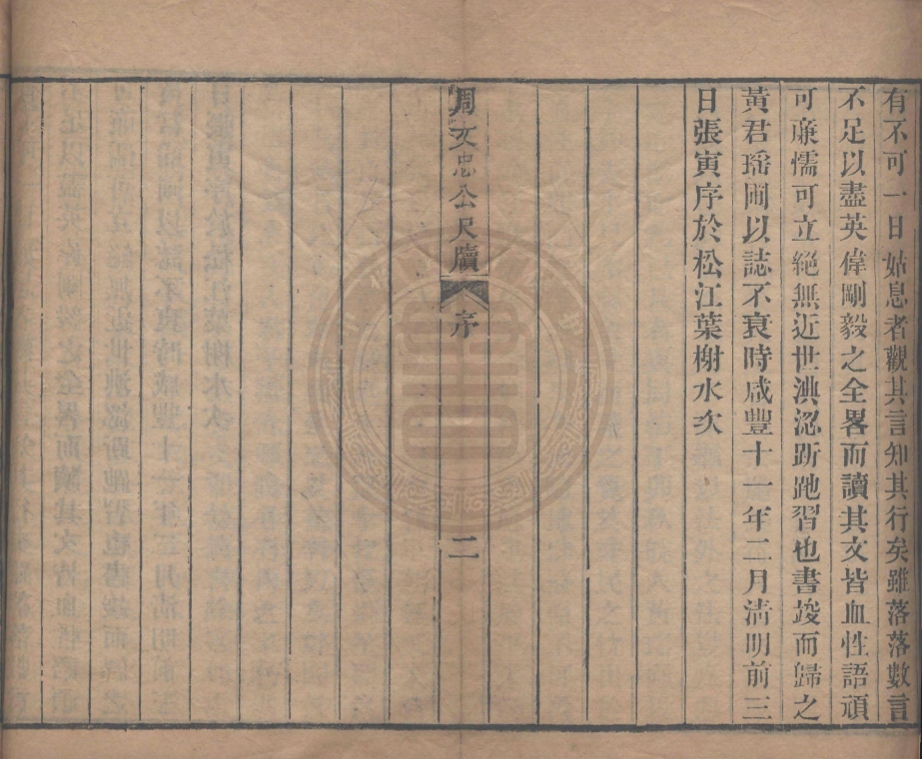 有不可一日姑息者觀其言知其行矣雖落落數言
不足以盡英偉剛毅之全畧而讀其文皆血性語頑
可亷懦可立絕無近世淟涊跅跑習也書竣而歸之
黃君瑶圃以誌不衰時咸豐十一年二月淸明前三
日張寅序於松江葉榭水次
周文忠公尺牘 序 二